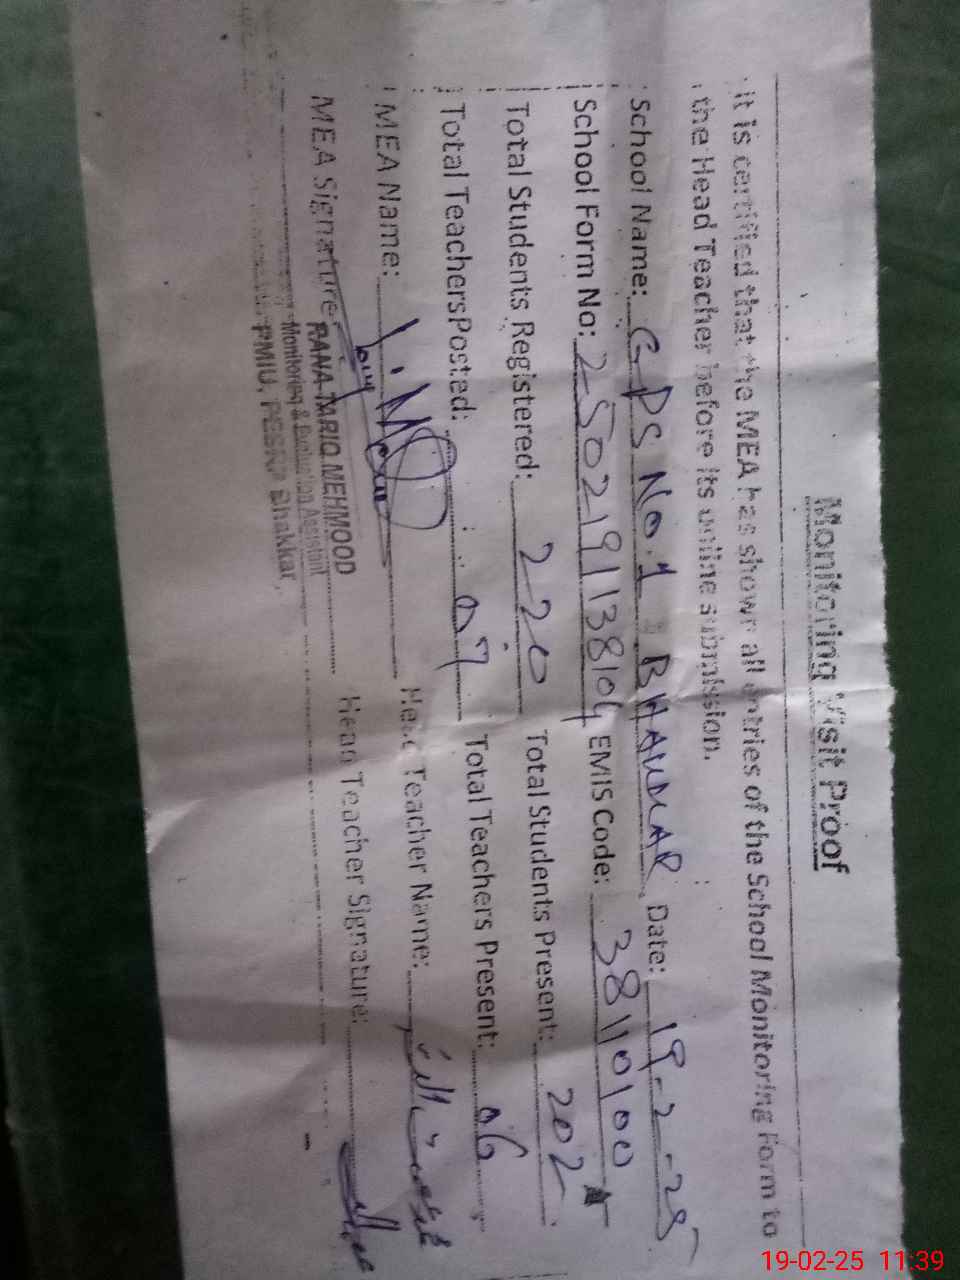 Monitoring Visit Proof
it is certified that the MEA has shown all entries of the School Monitoring Form to
the Head Teacher before its online submission.
School Name: GPS No.1 BHAUMAR Date: 19-2-25
School Form No: 2502191138104 EMIS Code: 38110100
Total Students Registered: 220 Total Students Present: 202
Total Teachers Posted: 07 Total Teachers Present: 06
MEA Name: Head Teacher Name:
MEA Signature Head Teacher Signature:
RANA TARIQ MEHMOOD
Monitoring & Evaluation Assistant
PMIU, PESRP Bhakkar
19-02-25 11:39